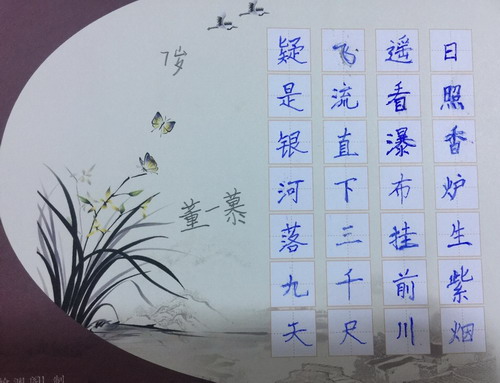 日照香炉生紫烟
遥看瀑布挂前川
飞流直下三千尺
疑是银河落九天
7岁
董一慕